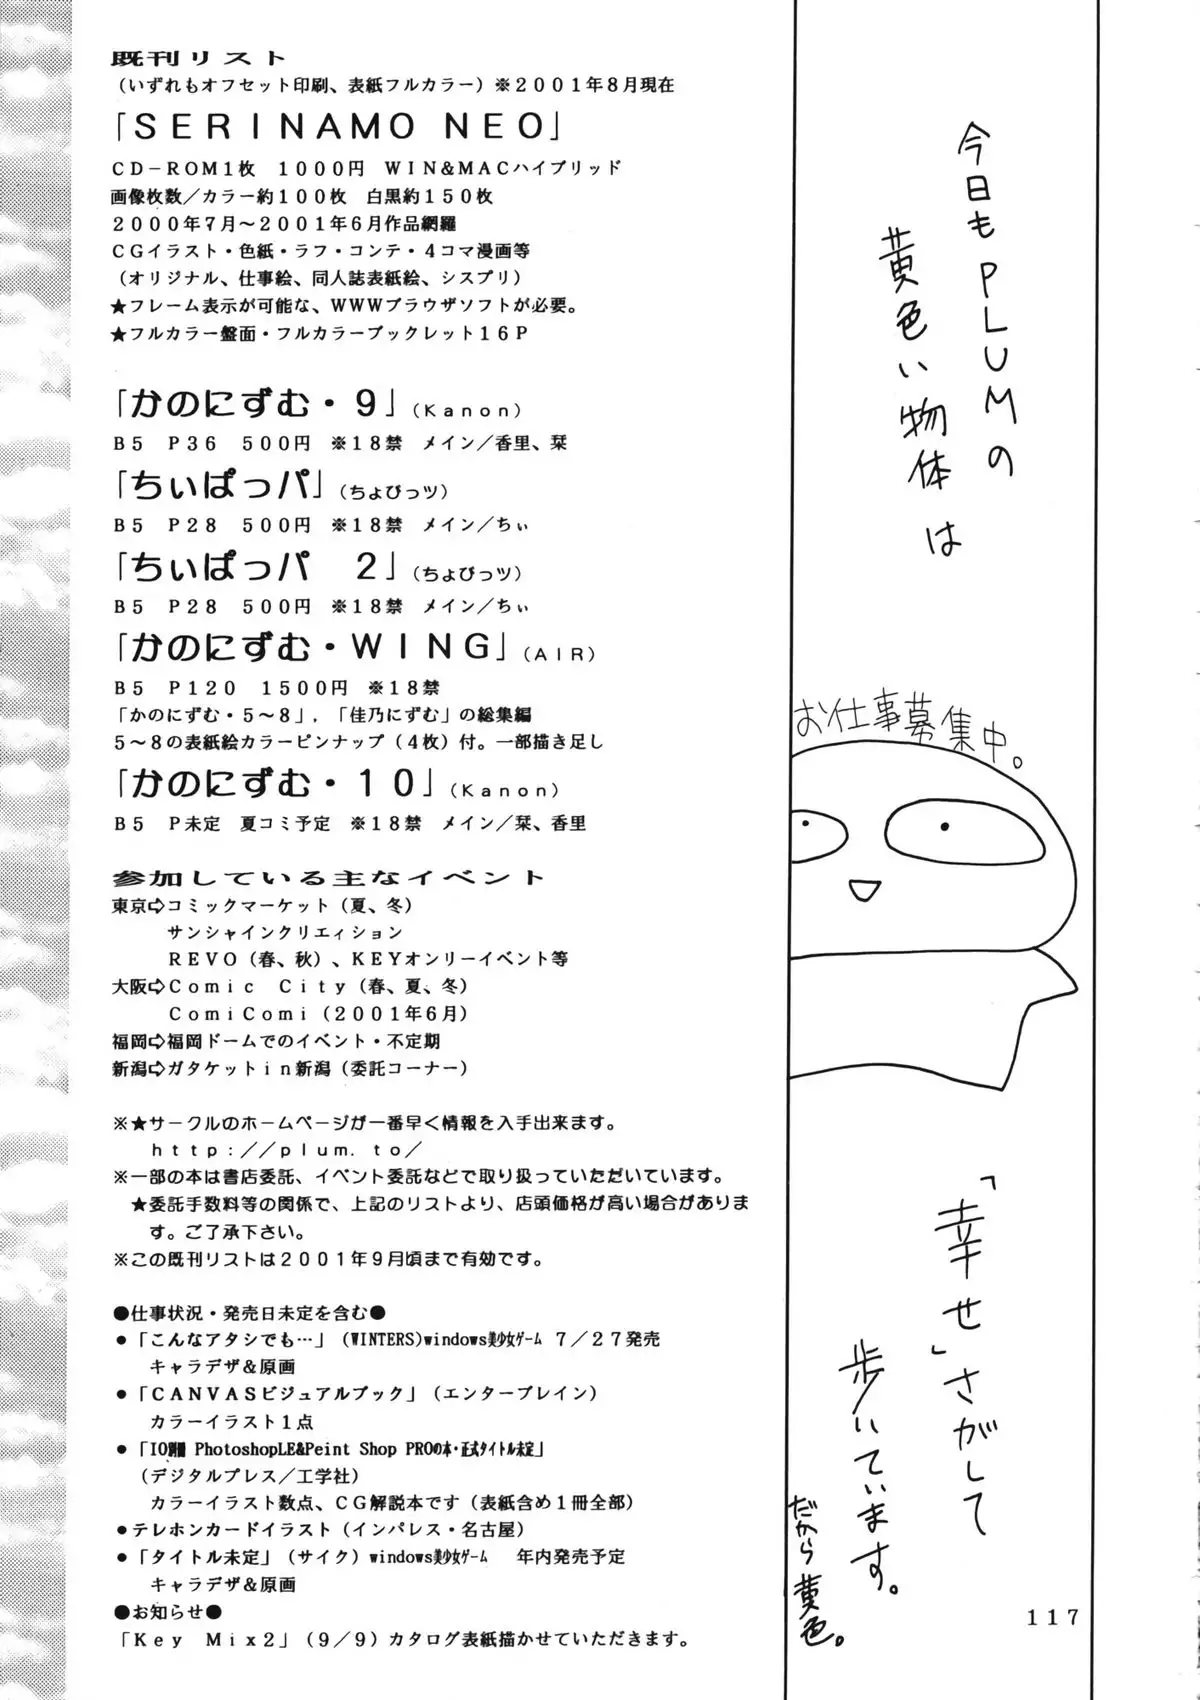 既刊リスト
（いずれもオフセット印刷、表紙フルカラー）※２００１年８月現在
「ＳＥＲＩＮＡＭＯ ＮＥＯ」
ＣＤ－ＲＯＭ１枚　１０００円　ＷＩＮ&ＭＡＣハイブリッド
画像枚数／カラー約１００枚　白黒約１５０枚
２０００年７月～２００１年６月作品網羅
ＣＧイラスト・色紙・ラフ・コンテ・４コマ漫画等
（オリジナル、仕事絵、同人誌表紙絵、シスプリ）
★フレーム表示が可能な、ＷＷＷブラウザソフトが必要。
★フルカラー盤面・フルカラーブックレット１６Ｐ
「かのにずむ・９」（Ｋａｎｏｎ）
Ｂ５　Ｐ３６　５００円　※１８禁　メイン／香里、栞
「ちぃぱっパ」（ちょびっツ）
Ｂ５　Ｐ２８　５００円　※１８禁　メイン／ちぃ
「ちぃぱっパ　２」（ちょびっツ）
Ｂ５　Ｐ２８　５００円　※１８禁　メイン／ちぃ
「かのにずむ・ＷＩＮＧ」（ＡＩＲ）
Ｂ５　Ｐ１２０　１５００円　※１８禁
「かのにずむ・５～８」，「佳乃にずむ」の総集編
５～８の表紙絵カラーピンナップ（４枚）付。一部描き足し
「かのにずむ・１０」（Ｋａｎｏｎ）
Ｂ５　Ｐ未定　夏コミ予定　※１８禁　メイン／栞、香里
参加している主なイベント
東京⇨コミックマーケット（夏、冬）
サンシャインクリエィション
ＲＥＶＯ（春、秋）、ＫＥＹオンリーイベント等
大阪⇨Ｃｏｍｉｃ　Ｃｉｔｙ（春、夏、冬）
ＣｏｍｉＣｏｍｉ（２００１年６月）
福岡⇨福岡ドームでのイベント・不定期
新潟⇨ガタケットｉｎ新潟（委託コーナー）
※★サークルのホームページが一番早く情報を入手出来ます。
ｈｔｔｐ：／／ｐｌｕｍ．ｔｏ／
※一部の本は書店委託、イベント委託などで取り扱っていただいています。
★委託手数料等の関係で、上記のリストより、店頭価格が高い場合がありま
す。ご了承下さい。
※この既刊リストは２００１年９月頃まで有効です。
●仕事状況・発売日未定を含む●
●「こんなアタシでも…」（WINTERS)windows美少女ｹﾞｰﾑ ７／２７発売
キャラデザ＆原画
●「ＣＡＮＶＡＳビジュアルブック」（エンターブレイン）
カラーイラスト１点
●「IO PhotoshopLE&Peint Shop PROの本・正式ﾀｲﾄﾙ未定」
（デジタルプレス／工学社）
カラーイラスト数点、ＣＧ解説本です（表紙含め１冊全部）
●テレホンカードイラスト（インパレス・名古屋）
●「タイトル未定」（サイク）windows美少女ｹﾞｰﾑ　年内発売予定
キャラデザ＆原画
●お知らせ●
「Ｋｅｙ　Ｍｉｘ２」（９／９）カタログ表紙描かせていただきます。
今日もPLUMの
黄色い物体は
お仕事募集中。
「幸せ」さがして
歩いています。
だから黄色。
１１７